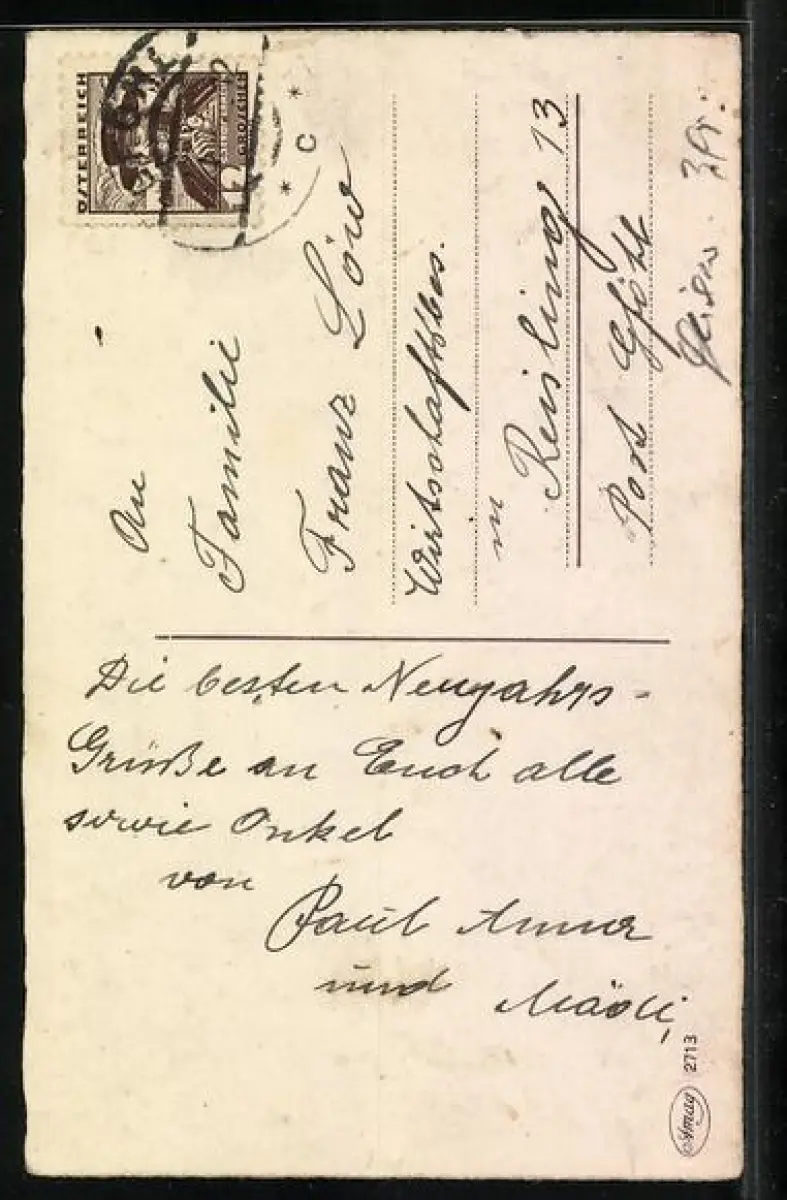 ÖSTERREICH
GROSCHEN
* C *
An
Familie
Franz Löw
Wirtschaftsbes.
in
Reisling 13
Post Gföhl
Die besten Neujahrs-
Grüße an Euch alle
sowie Onkel
von
Paul Anna
und Mädi
Amag 2713